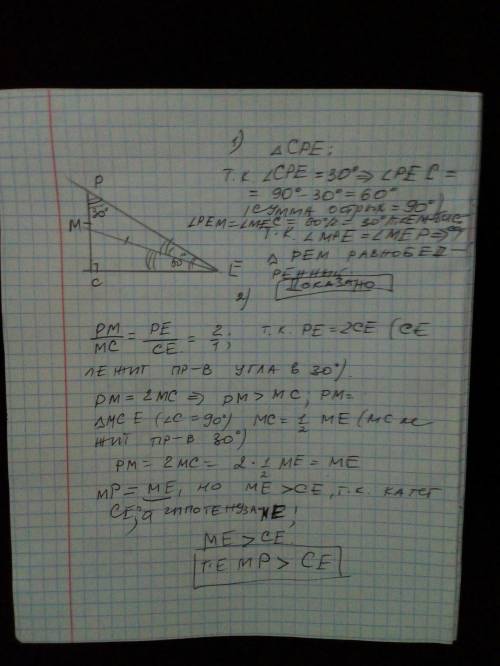 1)
△ CPE;
Т.К. ∠CPE = 30° ⇒ ∠PEC =
= 90° - 30° = 60°
(СУММА ОСТРЫХ = 90°)
∠PEM = ∠MEC = 60°/2 = 30°
Т.К. ∠MPE = ∠MEP ⇒
△ PEM РАВНОБЕД-
РЕННИК.
ДОКАЗАНО
P
30°
M
60°
E
C
2)
PM/MC = PE/CE = 2/1; Т.К. PE = 2CE (CE
ЛЕЖИТ ПР-В УГЛА В 30°).
PM = 2MC ⇒ PM > MC, PM=
△MCE (∠C = 90°) MC = 1/2 ME (MC ЛЕ
ЖИТ ПР-В 30°)
PM = 2MC = 2 · 1/2 ME = ME
MP = ME, НО ME > CE, Т.К. КАТЕТ
CE, а ГИПОТЕНУЗА ME;
ME > CE
Т.Е MP > CE